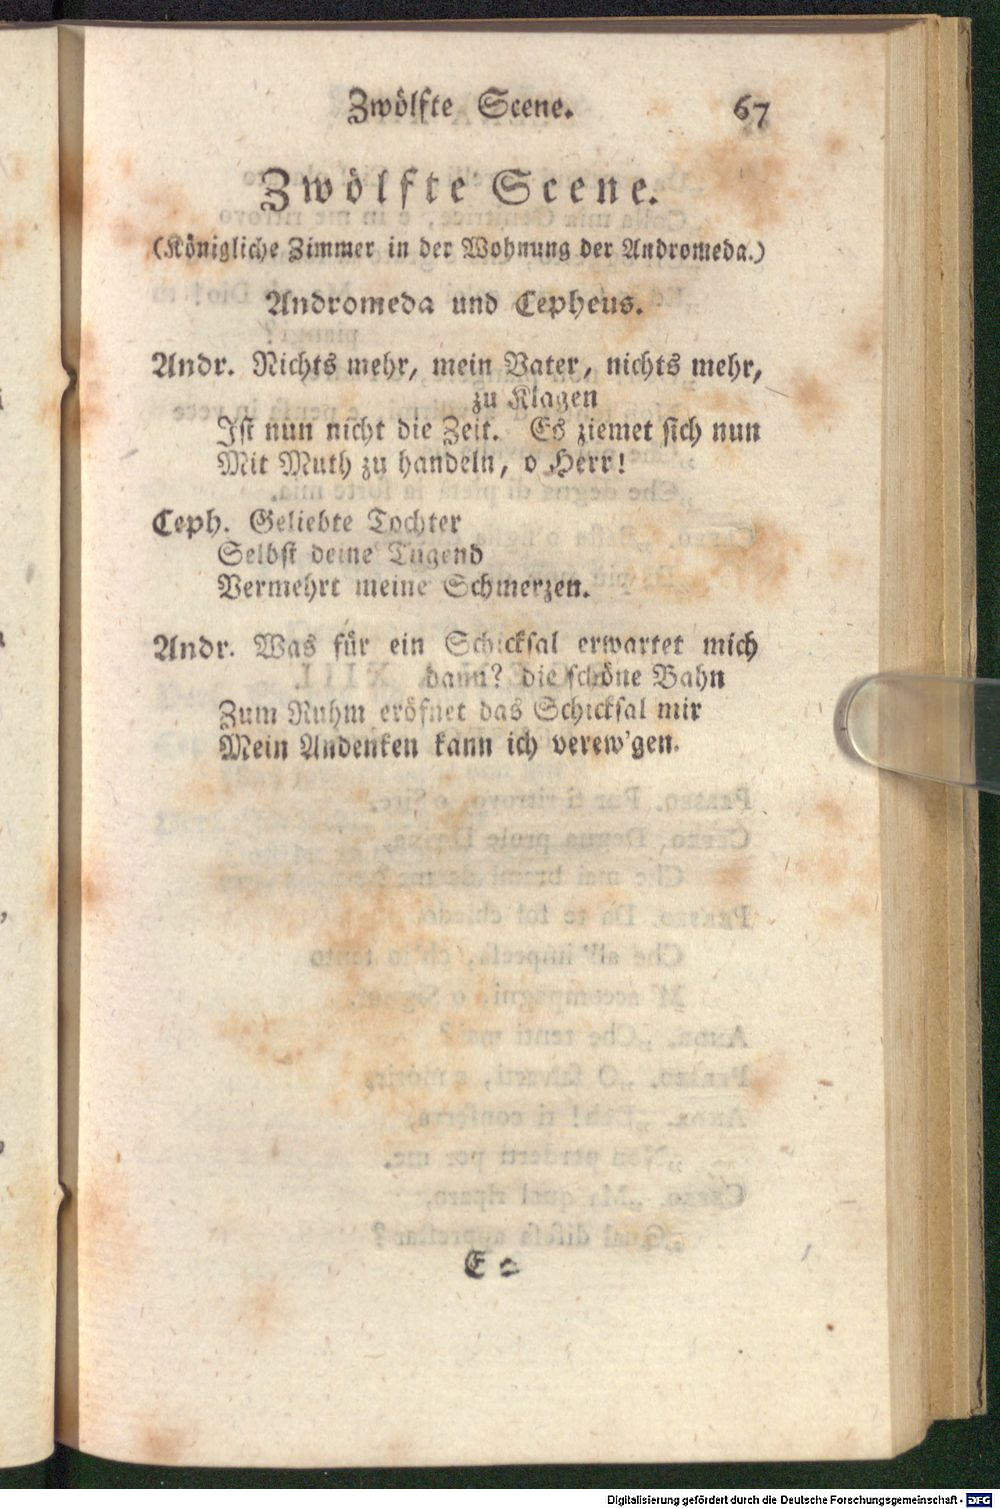 Zwölfte Scene. 67
Zwölfte Scene.
(Königliche Zimmer in der Wohnung der Andromeda.)
Andromeda und Cepheus.
Andr. Nichts mehr, mein Vater, nichts mehr,
zu Klagen
Ist nun nicht die Zeit. Es ziemet sich nun
Mit Muth zu handeln, o Herr!
Ceph. Geliebte Tochter
Selbst deine Tugend
Vermehrt meine Schmerzen.
Andr. Was für ein Schicksal erwartet mich
dann? die schöne Bahn
Zum Ruhm eröfnet das Schicksal mir
Mein Andenken kann ich verew'gen.
E 2
Digitalisierung gefördert durch die Deutsche Forschungsgemeinschaft - DFG